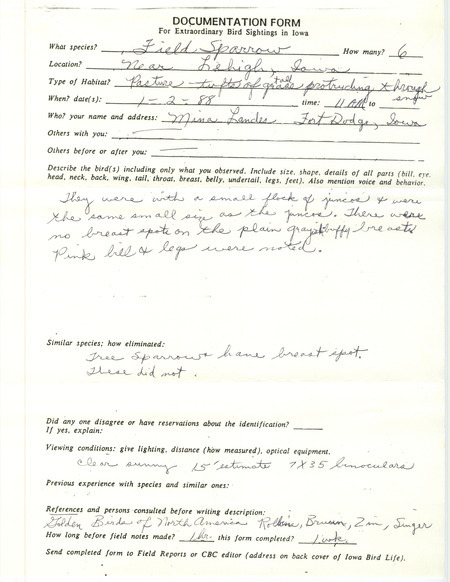 DOCUMENTATION FORM
For Extraordinary Bird Sightings in Iowa
What species? Field Sparrow How many? 6
Location? Near Lehigh, Iowa
Type of Habitat? Pasture - tufts of tall grass protruding through snow
When? date(s): 1-2-88 time: 11 AM to
Who? your name and address: Mina Landes Fort Dodge, Iowa
Others with you:
Others before or after you:
Describe the bird(s) including only what you observed. Include size, shape, details of all parts (bill, eye,
head, neck, back, wing, tail, throat, breast, belly, undertail, legs, feet). Also mention voice and behavior.
They were with a small flock of juncos & were
the same small size as the juncos. There were
no breast spots on the plain grayish buffy breasts
Pink bill & legs were noted.
Similar species; how eliminated:
Tree Sparrows have breast spot.
These did not.
Did any one disagree or have reservations about the identification?
If yes, explain:
Viewing conditions: give lighting, distance (how measured), optical equipment.
clear sunny 15' estimate 7X35 binoculars
Previous experience with species and similar ones:
References and persons consulted before writing description:
Golden Birds of North America Robbins, Bruun, Zim, Singer
How long before field notes made? 1 hr. this form completed? 1 wk.
Send completed form to Field Reports or CBC editor (address on back cover of Iowa Bird Life).